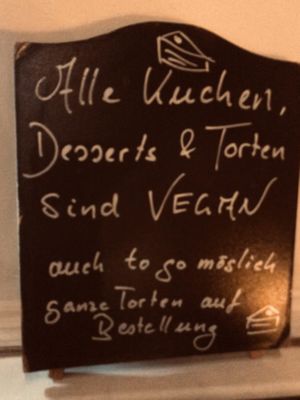 Alle Kuchen,
Desserts & Torten
sind VEGAN
auch to go möglich
ganze Torten auf
Bestellung